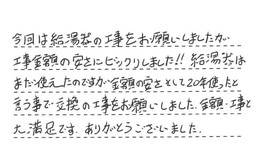 今回は給湯器の工事をお願いしましたが
工事金額の安さにビックリしました!! 給湯器は
まだ使えたのですが金額の安さとして20年使ったと
言う事で交換の工事をお願いしました。金額・工事と
大満足です。ありがとうございました。